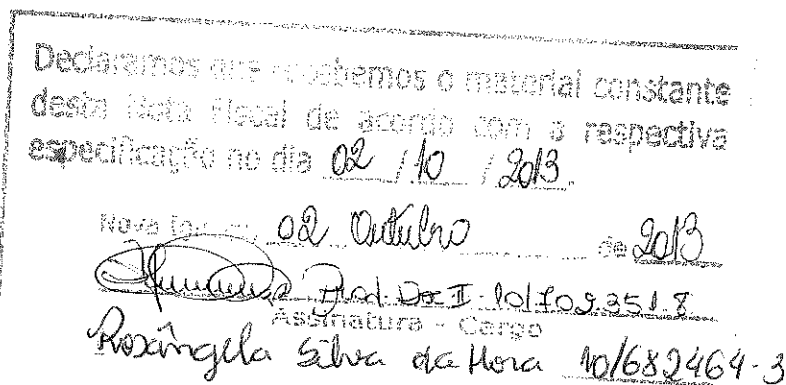 Declaramos que recebemos o material constante
desta Nota Fiscal de acordo com a respectiva
especificação no dia 02 / 10 / 2013.
Nova 02 Outubro de 2013
Prof. Doc II 10/709.251.8
Assinatura - Cargo
Rosângela Silva da Hora 10/682464-3